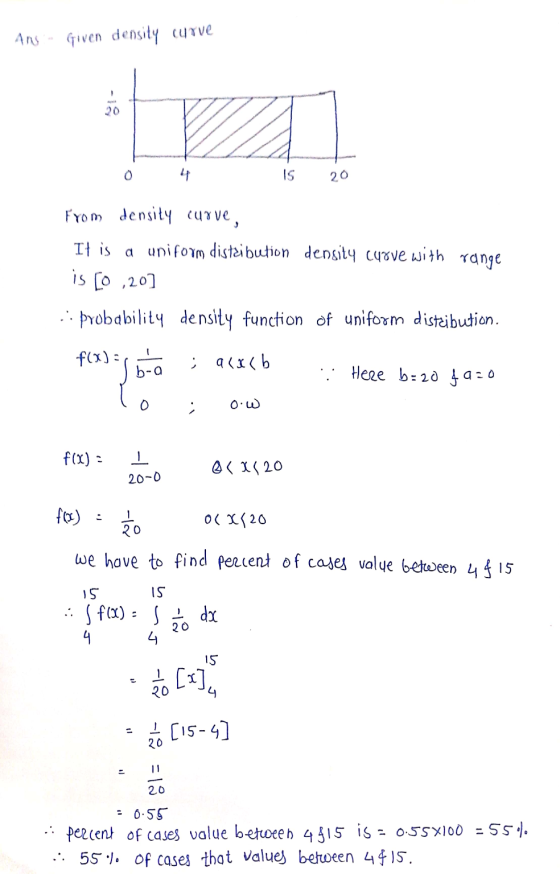 Ans - Given density curve
1/20
0 4 15 20
From density curve,
It is a uniform distribution density curve with range
is [0 ,20]
∴ probability density function of uniform distribution.
f(x) = { 1/(b-a) ; a<x<b ∵ Here b=20 & a=0
0 ; o.w
f(x) = 1/(20-0) 0<x<20
f(x) = 1/20 0<x<20
we have to find percent of cases value between 4 & 15
∴ ∫₄¹⁵ f(x) = ∫₄¹⁵ 1/20 dx
= 1/20 [x]₄¹⁵
= 1/20 [15-4]
= 11/20
= 0.55
∴ percent of cases value between 4 & 15 is = 0.55×100 = 55%.
∴ 55%. of cases that values between 4 & 15.